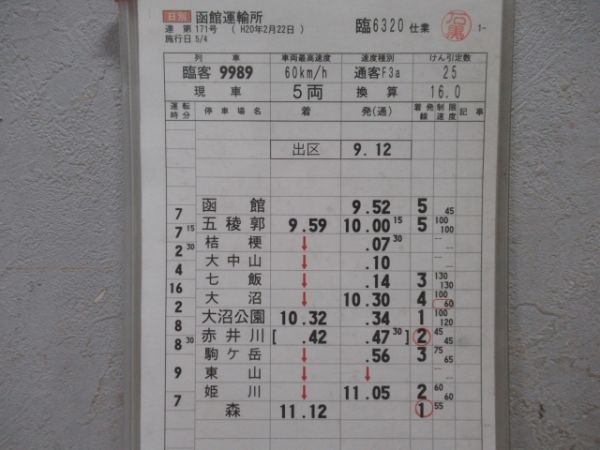 日別 函館運輸所
達 第171号 ( H20年2月22日 )
施行日 5/4
臨6320 仕業
石黒
1-
列車 車両最高速度 速度種別 けん引定数
臨客 9989 60km/h 通客F3a 25
現車 5両 換算 16.0
運転時分 停車場名 着 発(通) 着発線 制限速度 記事
出区 9.12
函館 9.52 5 45
7
五稜郭 9.59 10.00 15 5 100 100
7 15
桔梗 ↓ .07 30
2 30
大中山 ↓ .10
4
七飯 ↓ .14 3 130 130
16
大沼 ↓ 10.30 4 100 60
2
大沼公園 10.32 .34 1 100 120
8
赤井川 [ .42 .47 30 ] 2 45 45
8 30
駒ヶ岳 ↓ .56 3 75 65
9
東山 ↓ ↓
姫川 ↓ 11.05 2 60 60
7
森 11.12 1 55